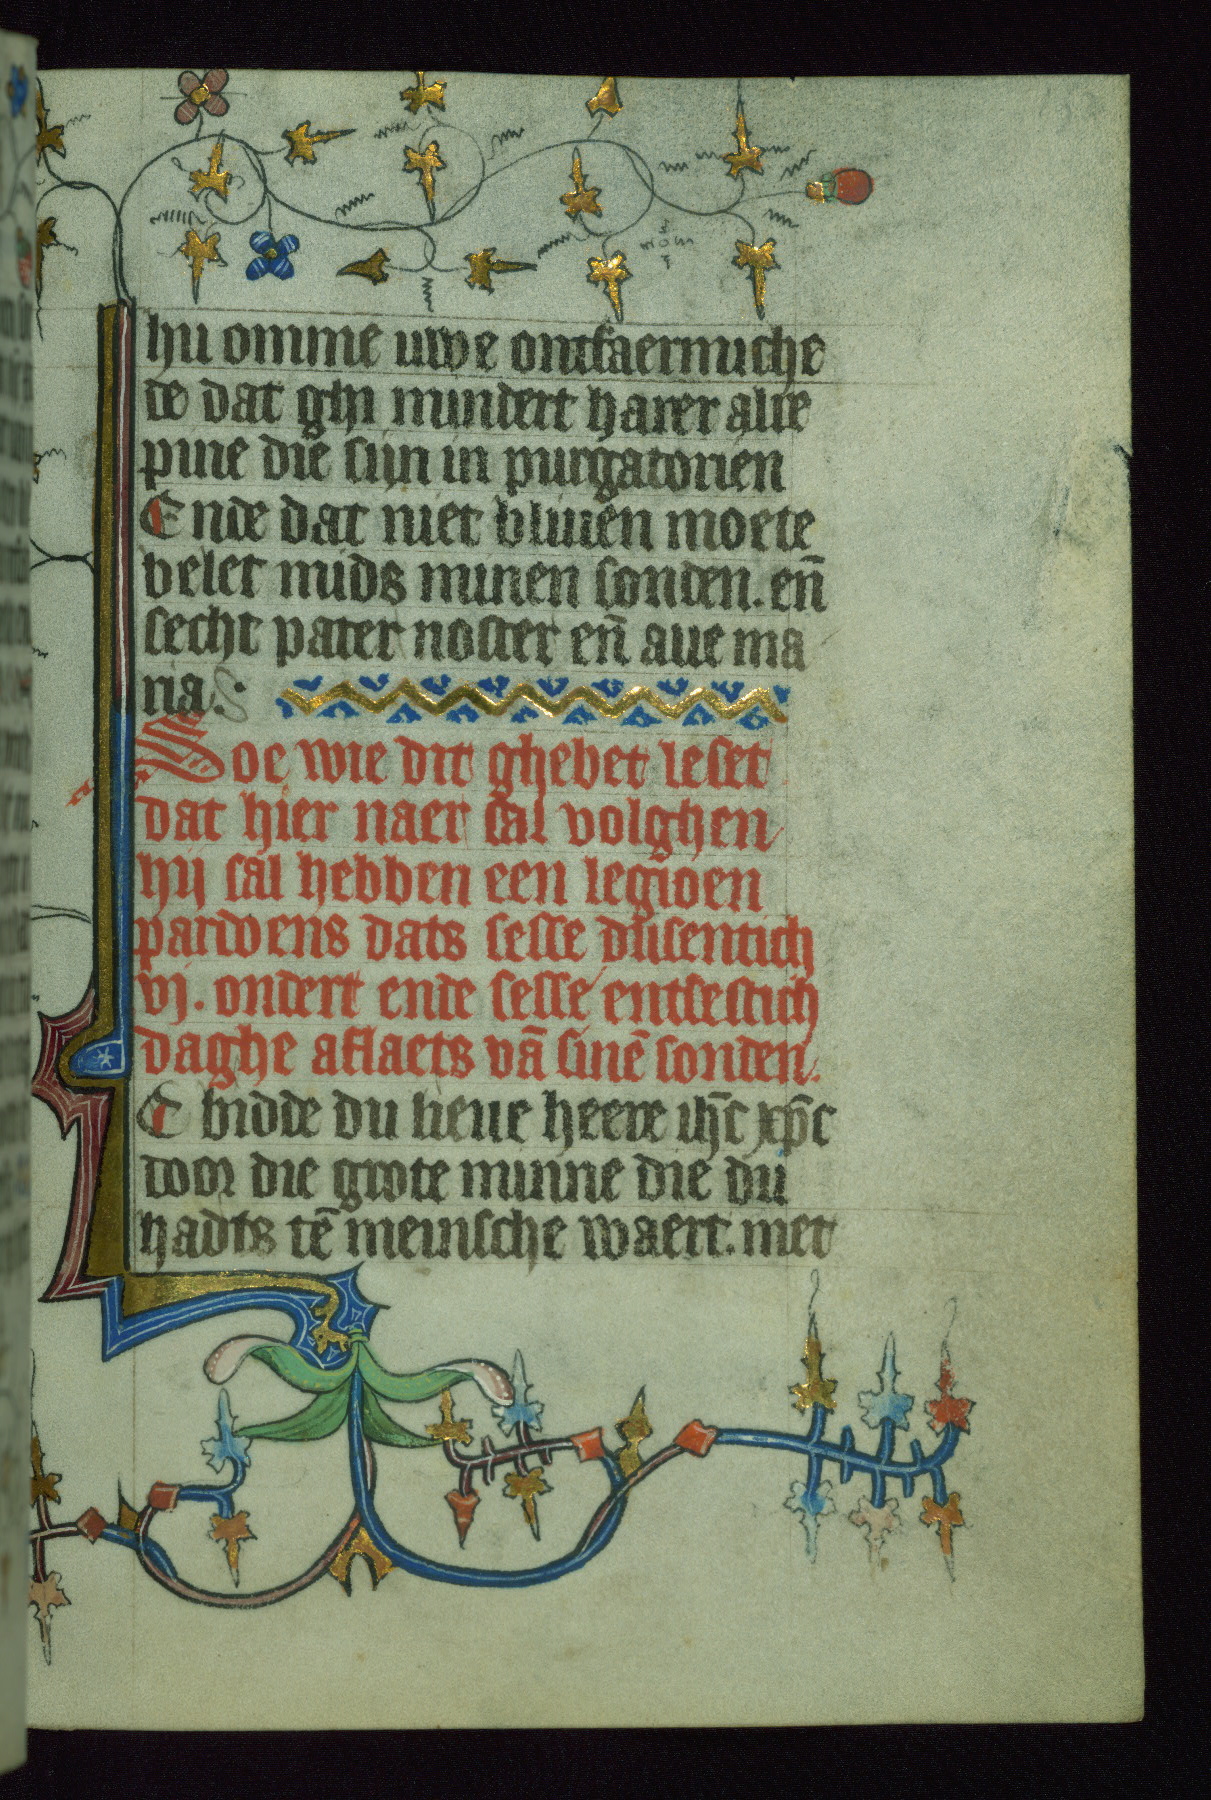 hu omme uwe ontfaermiche
de dat ghi mindert harer alre
pine die siin in purgatorien
Ende dat niet bliuen moete
belet mids minen sonden. en̄
secht pater noster en̄ aue ma
ria.
Soe wie dit ghebet leset
dat hier naer sal volghen
hij sal hebben een legioen
pardoens dats sesse dusentich
vj. ondert ende sesse entsestich
daghe aflaets vā sinē sonden.
C bidde du lieue heere ih̄c xp̄c
door die grote minne die du
hadts tē meinsche waert. met